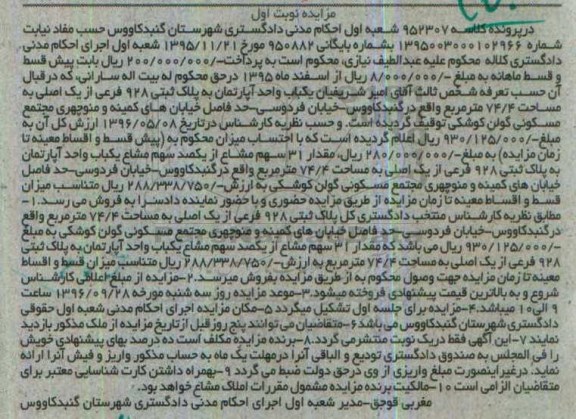 مزایده نوبت اول
درپرونده کلاسه ۹۵۲۳۰۷ شعبه اول احکام مدنی دادگستری شهرستان گنبدکاووس حسب مفاد نیابت
شماره ۱۳۹۵۰۰۳۰۰۰۱۰۲۹۶۶ بشماره بایگانی ۹۵۰۸۸۲ مورخ ۱۳۹۵/۱۱/۲۱ شعبه اول اجرای احکام مدنی
دادگستری کلاله محکوم علیه عبدالطیف نیازی، محکوم است به پرداخت-/۲۰۰/۰۰۰/۰۰۰ ریال بابت پیش قسط
و قسط ماهانه به مبلغ -/۸/۰۰۰/۰۰۰ ریال از اسفند ماه ۱۳۹۵ درحق محکوم له بیت اله سارانی، که در قبال
آن حسب تعرفه شخص ثالث آقای امیر شریفیان یکباب واحد آپارتمان به پلاک ثبتی ۹۲۸ فرعی از یک اصلی به
مساحت ۷۴/۴ مترمربع واقع درگنبدکاووس-خیابان فردوسی-حد فاصل خیابان های کمینه و منوچهری مجتمع
مسکونی گولن کوشکی توقیف گردیده است. و حسب نظریه کارشناس درتاریخ ۱۳۹۶/۰۵/۰۸ ارزش کل آن به
مبلغ-/۹۳۰/۱۲۵/۰۰۰ ریال اعلام گردیده است که با احتساب میزان محکوم به (پیش قسط و اقساط معینه تا
زمان مزایده) به مبلغ-/۲۸۰/۰۰۰/۰۰۰ ریال، مقدار ۳۱ سهم مشاع از یکصد سهم مشاع یکباب واحد آپارتمان
به پلاک ثبتی ۹۲۸ فرعی از یک اصلی به مساحت ۷۴/۴ مترمربع واقع درگنبدکاووس-خیابان فردوسی-حد فاصل
خیابان های کمینه و منوچهری مجتمع مسکونی گولن کوشکی به ارزش-/۲۸۸/۳۳۸/۷۵۰ ریال متناسب میزان
قسط و اقساط معینه تا زمان مزایده از طریق مزایده حضوری و با حضور نماینده دادسرا به فروش می رسد.۱-
مطابق نظریه کارشناس منتخب دادگستری کل پلاک ثبتی ۹۲۸ فرعی از یک اصلی به مساحت ۷۴/۴ مترمربع واقع
درگنبدکاووس-خیابان فردوسی-حد فاصل خیابان های کمینه و منوچهری مجتمع مسکونی گولن کوشکی به مبلغ
-/۹۳۰/۱۲۵/۰۰۰ ریال می باشد که مقدار ۳۱ سهم مشاع از یکصد سهم مشاع یکباب واحد آپارتمان به پلاک ثبتی
۹۲۸ فرعی از یک اصلی به مساحت ۷۴/۴ مترمربع به ارزش-/۶۸۸/۳۳۸/۷۵۰ ریال متناسب میزان قسط و اقساط
معینه تا زمان مزایده جهت وصول محکوم به از طریق مزایده بفروش میرسد.۲-مزایده از مبلغ اعلامی کارشناس
شروع و به بالاترین قیمت پیشنهادی فروخته میشود.۳-موعد مزایده روز سه شنبه مورخه ۱۳۹۶/۰۹/۲۸ ساعت
۹ الی۱۰ میباشد.۴-مزایده برای جلسه اول تشکیل میگردد ۵-مکان مزایده اجرای احکام مدنی شعبه اول حقوقی
دادگستری شهرستان گنبدکاووس می باشد ۶-متقاضیان می توانند پنج روز قبل ازتاریخ مزایده از ملک مذکور بازدید
نمایند ۷-این آگهی فقط دریک نوبت منتشر می گردد.۸-برنده مزایده مکلف است ده درصد بهای پیشنهادی خویش
را فی المجلس به صندوق دادگستری تودیع و الباقی آنرا درمهلت یک ماه به حساب مذکور واریز و فیش آنرا ارائه
نماید. درغیر اینصورت مبلغ واریزی از وی درحق دولت ضبط می گردد ۹-بهمراه داشتن کارت شناسایی معتبر برای
متقاضیان الزامی است ۱۰-مالکیت برنده مزایده مشمول مقررات املاک مشاع خواهد بود.
مغربی قوجق-مدیر شعبه اول اجرای احکام مدنی دادگستری شهرستان گنبدکاووس